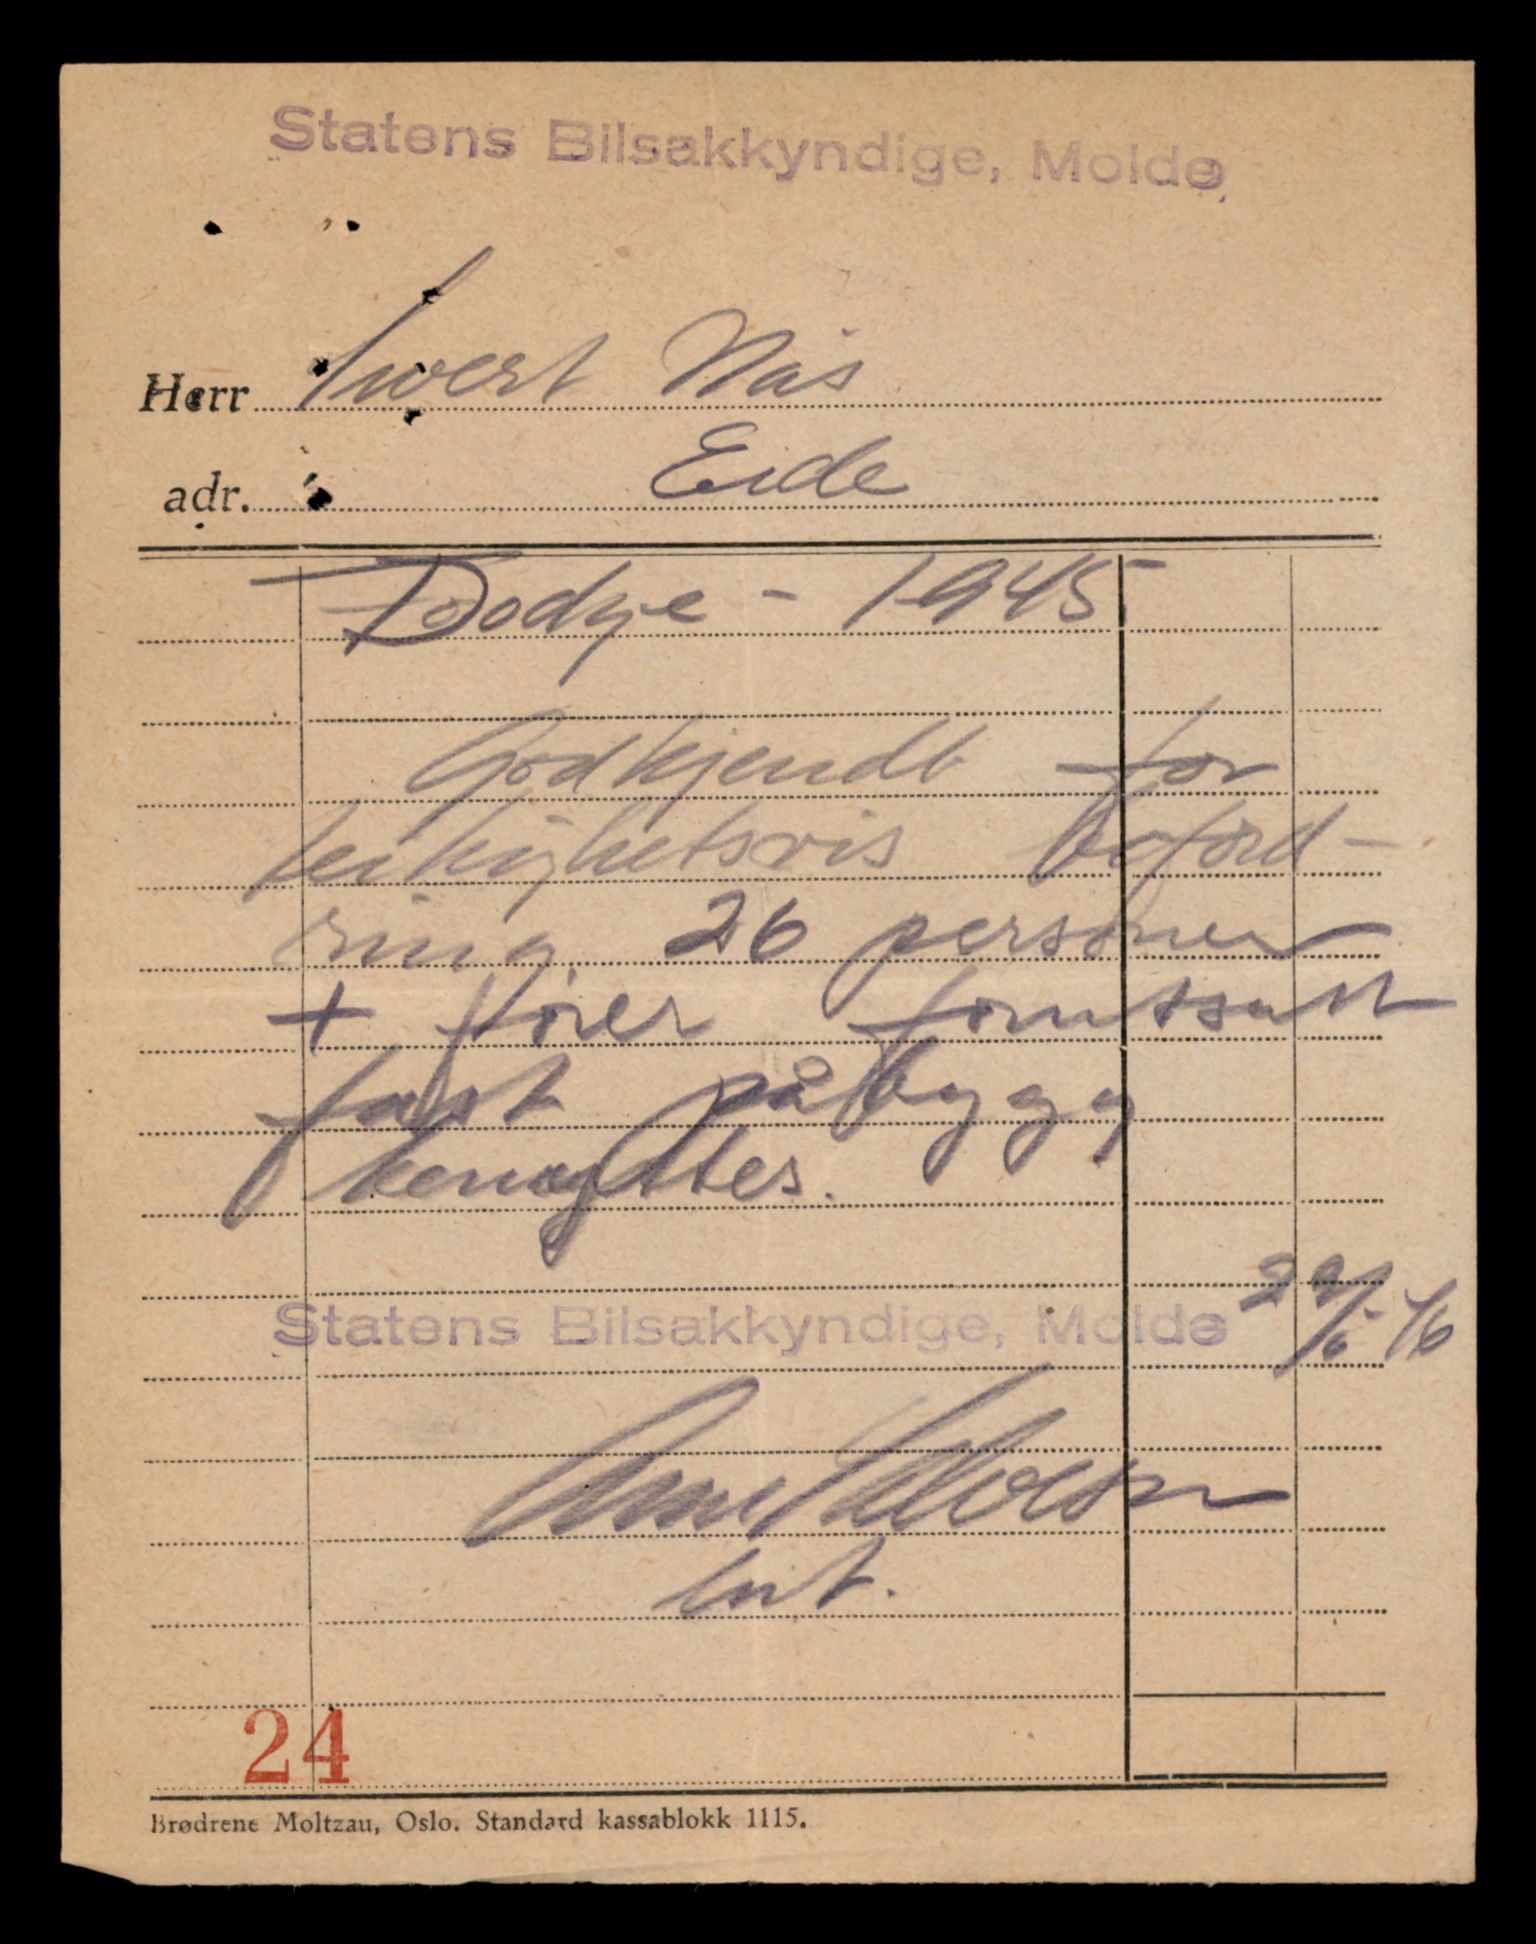 Statens Bilsakkyndige, Molde
Herr Sivert Nås
adr. Eide
Dodge - 1945
Godkjendt for
leilighetsvis beford-
ring 26 personer
+ fører forutsatt
fast påbygg
benyttes.
29/6-46
Statens Bilsakkyndige, Molde
Arne
ent.
24
Brødrene Moltzau, Oslo. Standard kassablokk 1115.